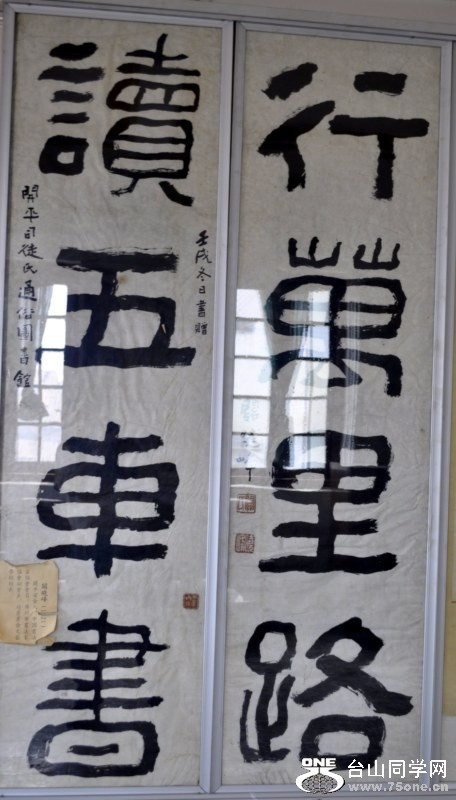 行萬里路
讀五車書
壬戌冬日書贈
開平司徒氏通俗圖書館
ONE
台山同学网
www.75one.cn